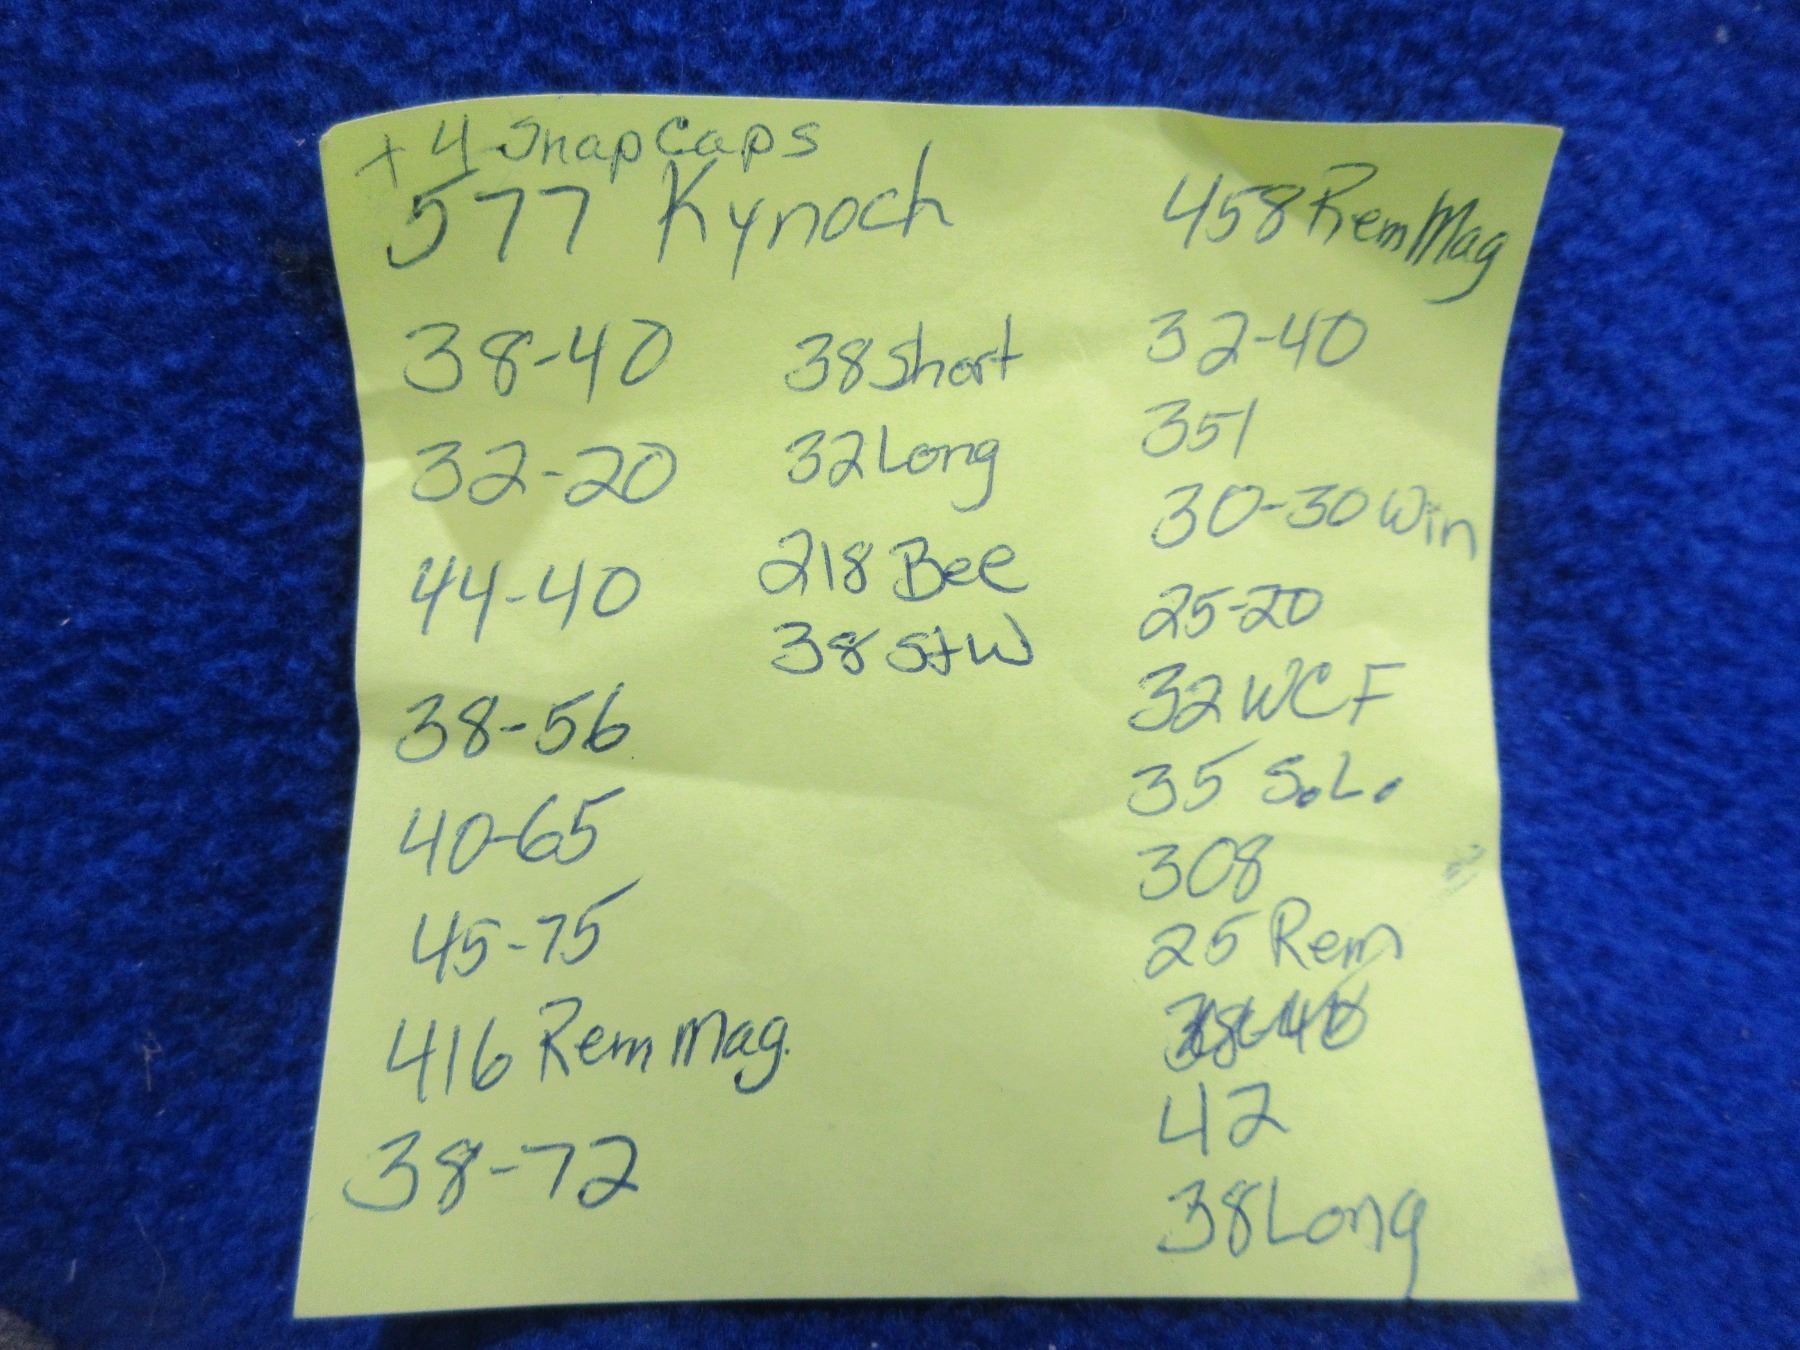 +4 Snap Caps
577 Kynoch
38-40
32-20
44-40
38-56
40-65
45-75
416 Rem Mag.
38-72
38 Short
32 Long
218 Bee
38 S+W
458 Rem Mag
32-40
351
30-30 Win
25-20
32 WCF
35 S.L.
308
25 Rem
42
38 Long